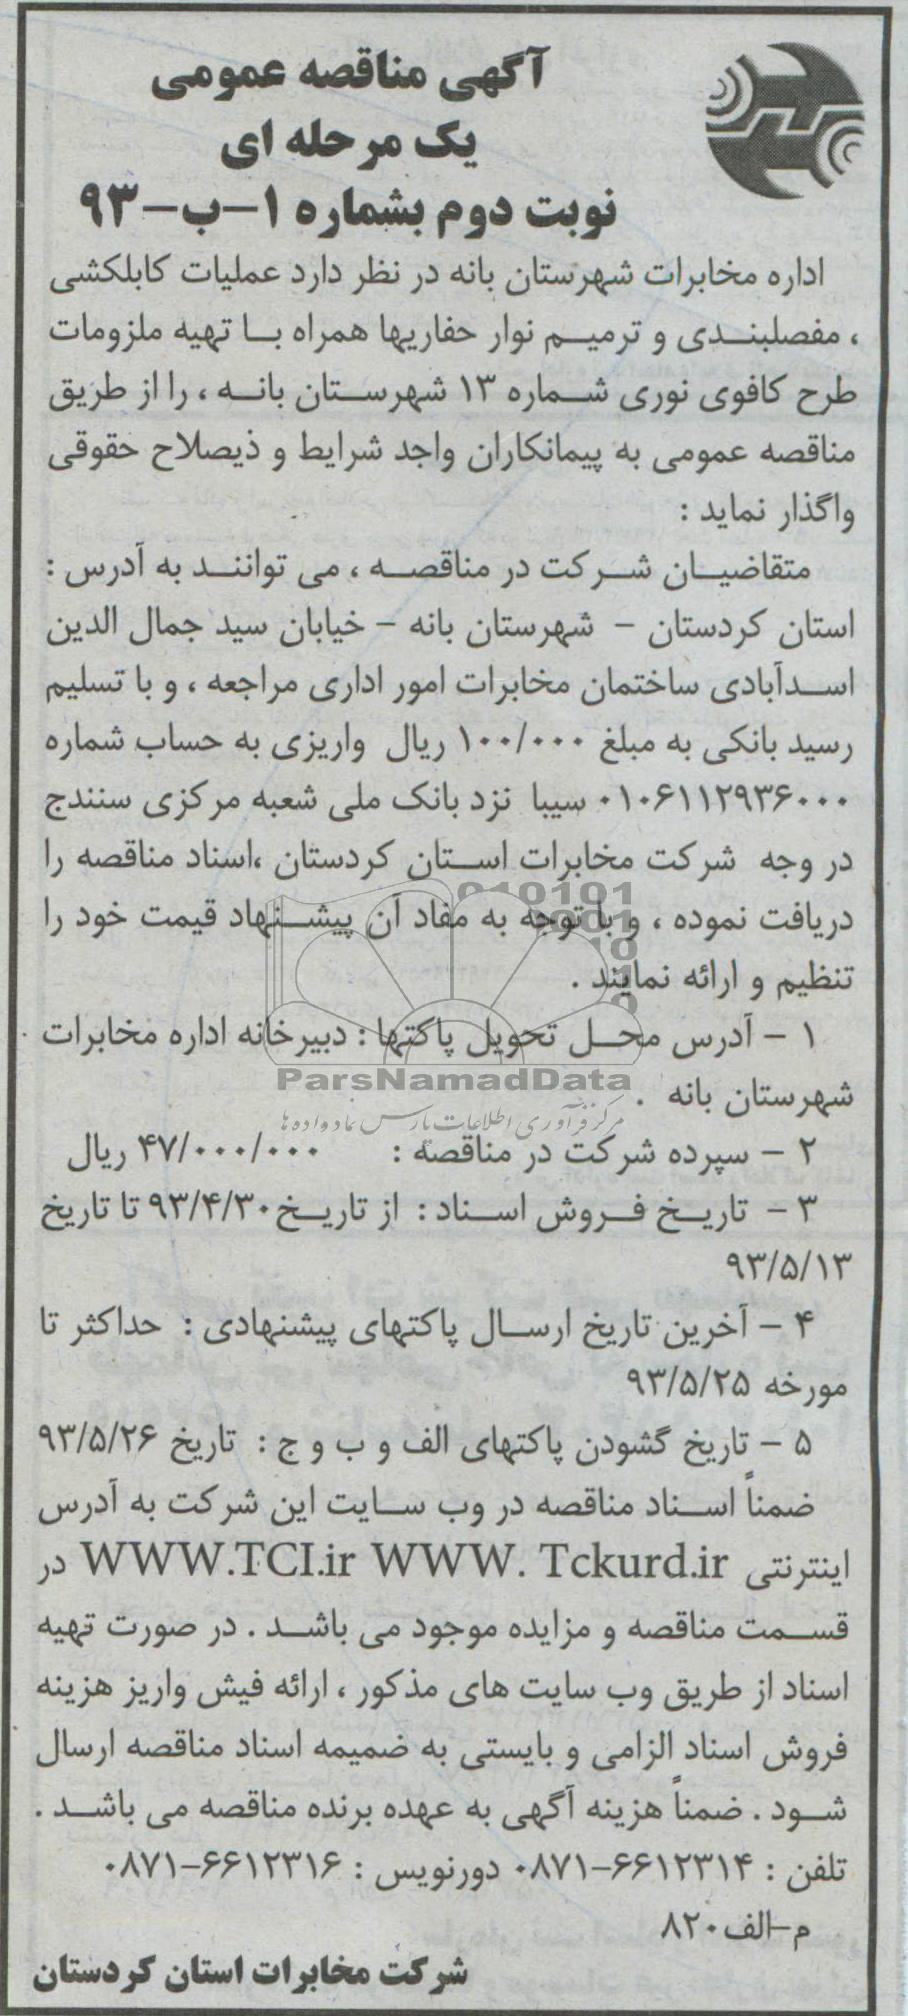 آگهی مناقصه عمومی
یک مرحله ای
نوبت دوم بشماره ۱-ب-۹۳
اداره مخابرات شهرستان بانه در نظر دارد عملیات کابلکشی
، مفصلبندی و ترمیم نوار حفاریها همراه با تهیه ملزومات
طرح کافوی نوری شماره ۱۳ شهرستان بانه ، را از طریق
مناقصه عمومی به پیمانکاران واجد شرایط و ذیصلاح حقوقی
واگذار نماید :
متقاضیان شرکت در مناقصه ، می توانند به آدرس :
استان کردستان - شهرستان بانه - خیابان سید جمال الدین
اسدآبادی ساختمان مخابرات امور اداری مراجعه ، و با تسلیم
رسید بانکی به مبلغ ۱۰۰/۰۰۰ ریال واریزی به حساب شماره
۰۱۰۶۱۱۲۹۳۶۰۰۰ سیبا نزد بانک ملی شعبه مرکزی سنندج
در وجه شرکت مخابرات استان کردستان ،اسناد مناقصه را
دریافت نموده ، و با توجه به مفاد آن پیشنهاد قیمت خود را
تنظیم و ارائه نمایند .
۱ - آدرس محل تحویل پاکتها : دبیرخانه اداره مخابرات
ParsNamadData
شهرستان بانه .
مرکز فرآوری اطلاعات پارس نماد داده ها
۲ - سپرده شرکت در مناقصه : ۴۷/۰۰۰/۰۰۰ ریال
۳ - تاریخ فروش اسناد : از تاریخ۹۳/۴/۳۰ تا تاریخ
۹۳/۵/۱۳
۴ - آخرین تاریخ ارسال پاکتهای پیشنهادی : حداکثر تا
مورخه ۹۳/۵/۲۵
۵ - تاریخ گشودن پاکتهای الف و ب و ج : تاریخ ۹۳/۵/۲۶
ضمناً اسناد مناقصه در وب سایت این شرکت به آدرس
اینترنتی WWW.TCI.ir WWW. Tckurd.ir در
قسمت مناقصه و مزایده موجود می باشد . در صورت تهیه
اسناد از طریق وب سایت های مذکور ، ارائه فیش واریز هزینه
فروش اسناد الزامی و بایستی به ضمیمه اسناد مناقصه ارسال
شود . ضمناً هزینه آگهی به عهده برنده مناقصه می باشد .
تلفن : ۶۶۱۲۳۱۴-۰۸۷۱ دورنویس : ۶۶۱۲۳۱۶-۰۸۷۱
م-الف۸۲۰
شرکت مخابرات استان کردستان